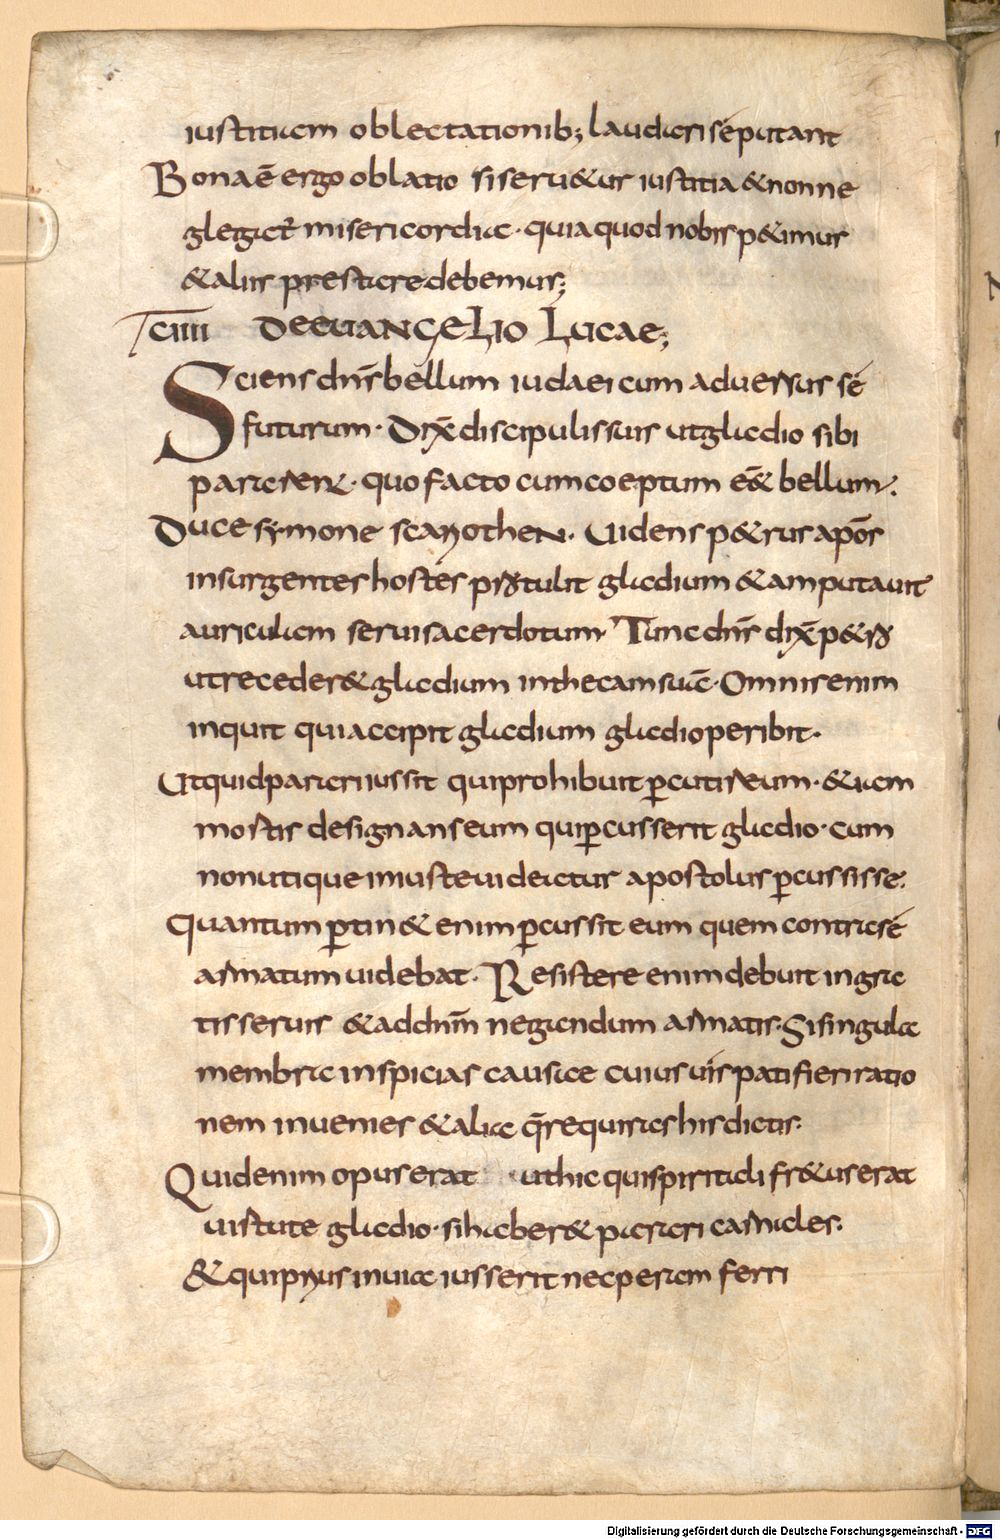 iustitiam oblectationib; laudari sé putant
Bona ē ergo oblatio si seru&ur iustitia & non ne
glegat̄ misericordia · quia quod nobis p&imus
& aliis prestare debemus;
T̄CIIII DE EUANGELIO LUCAE;
Sciens dn̄s bellum iudaeicum aduersus sé
futurum · Dix̄ discipulis suis ut gladio sibi
pararent · quo facto cum coeptum ēē& bellum ·
Duce symone scariothen · Uidens p&rus apo̅s
insurgentes hostes protulit gladium & amputauit
auriculam serui sacerdotum · Tunc dn̄s dix̄ p&ro
ut receder& gladium in thecam suā · Omnis enim
inquit qui accipit gladium gladio peribit ·
Ut quid parari iussit qui prohibuit p̄cuti reum · & iam
mostis designans eum qui p̄cusserit gladio · cum
non utique iniuste uideatur apostolus p̄cussisse ·
Quantum p̄tin& enim p̄cussit eum quem contra sé
armatum uidebat · Resistere enim debuit ingra
tis seruis & ad dn̄m negandum armatis · Si singula
membra inspicias causae cuiusuis pati fieri ratio
nem inuenies & alia q̄ requiras his dictis ·
Quid enim opus erat · ut hic qui spiritali fr&us erat
uistute gladio · si haber& parari carnales ·
& qui prius in uia iusserit nec peram ferri
Digitalisierung gefördert durch die Deutsche Forschungsgemeinschaft - DFG